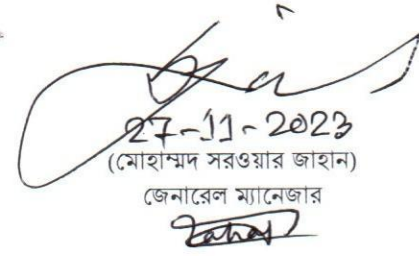 27-11-2023
(মোহাম্মদ সরওয়ার জাহান)
জেনারেল ম্যানেজার